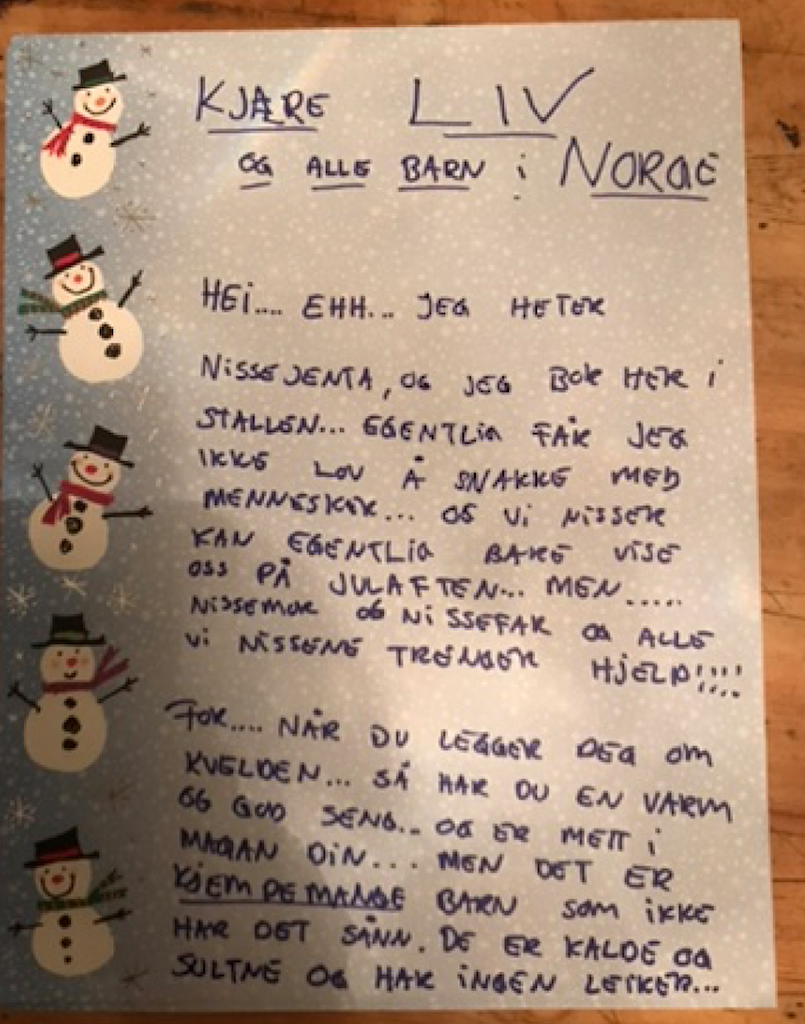 KJÆRE LIV
OG ALLE BARN i NORGE
HEi.... EHH... JEG HETER
NiSSEJENTA, OG JEG BOR HER i
STALLEN... EGENTLIG FÅR JEG
IKKE LOV Å SNAKKE MED
MENNESKER... OG Vi NISSER
KAN EGENTLIG BARE VISE
OSS PÅ JULAFTEN... MEN.....
NISSEMOR OG NiSSEFAR OG ALLE
Vi NISSENE TRENGER HJELP!!!!
FOR.... NÅR DU LEGGER DEG OM
KVELDEN... SÅ HAR DU EN VARM
OG GOD SENG... OG ER METT i
MAGAN DIN... MEN DET ER
KJEMPEMANGE BARN SOM iKKE
HAR DET SÅNN. DE ER KALDE OG
SULTNE OG HAR iNGEN LEKER...